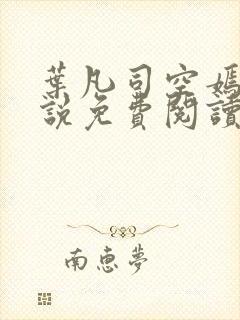 葉凡司空嫣
說免費閱讀
南惠夢